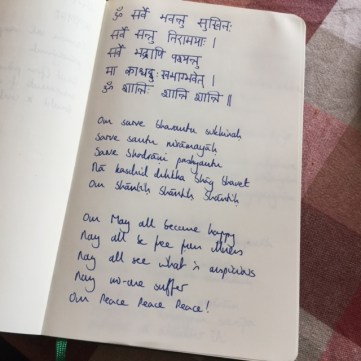 ॐ सर्वे भवन्तु सुखिनः
सर्वे सन्तु निरामयाः ।
सर्वे भद्राणि पश्यन्तु
मा कश्चिद्दुःखभाग्भवेत् ।
ॐ शान्ति शान्ति शान्ति ॥
Om sarve bhavantu sukhinah
Sarve santu nirāmayāh
Sarve bhadrāni pashyantu
Mā kaschid duhkha bhāg bhavet
Om Shāntih Shāntih Shāntih
Om May all become happy
May all be free from illness
May all see what is auspicious
May no-one suffer
Om Peace Peace Peace!